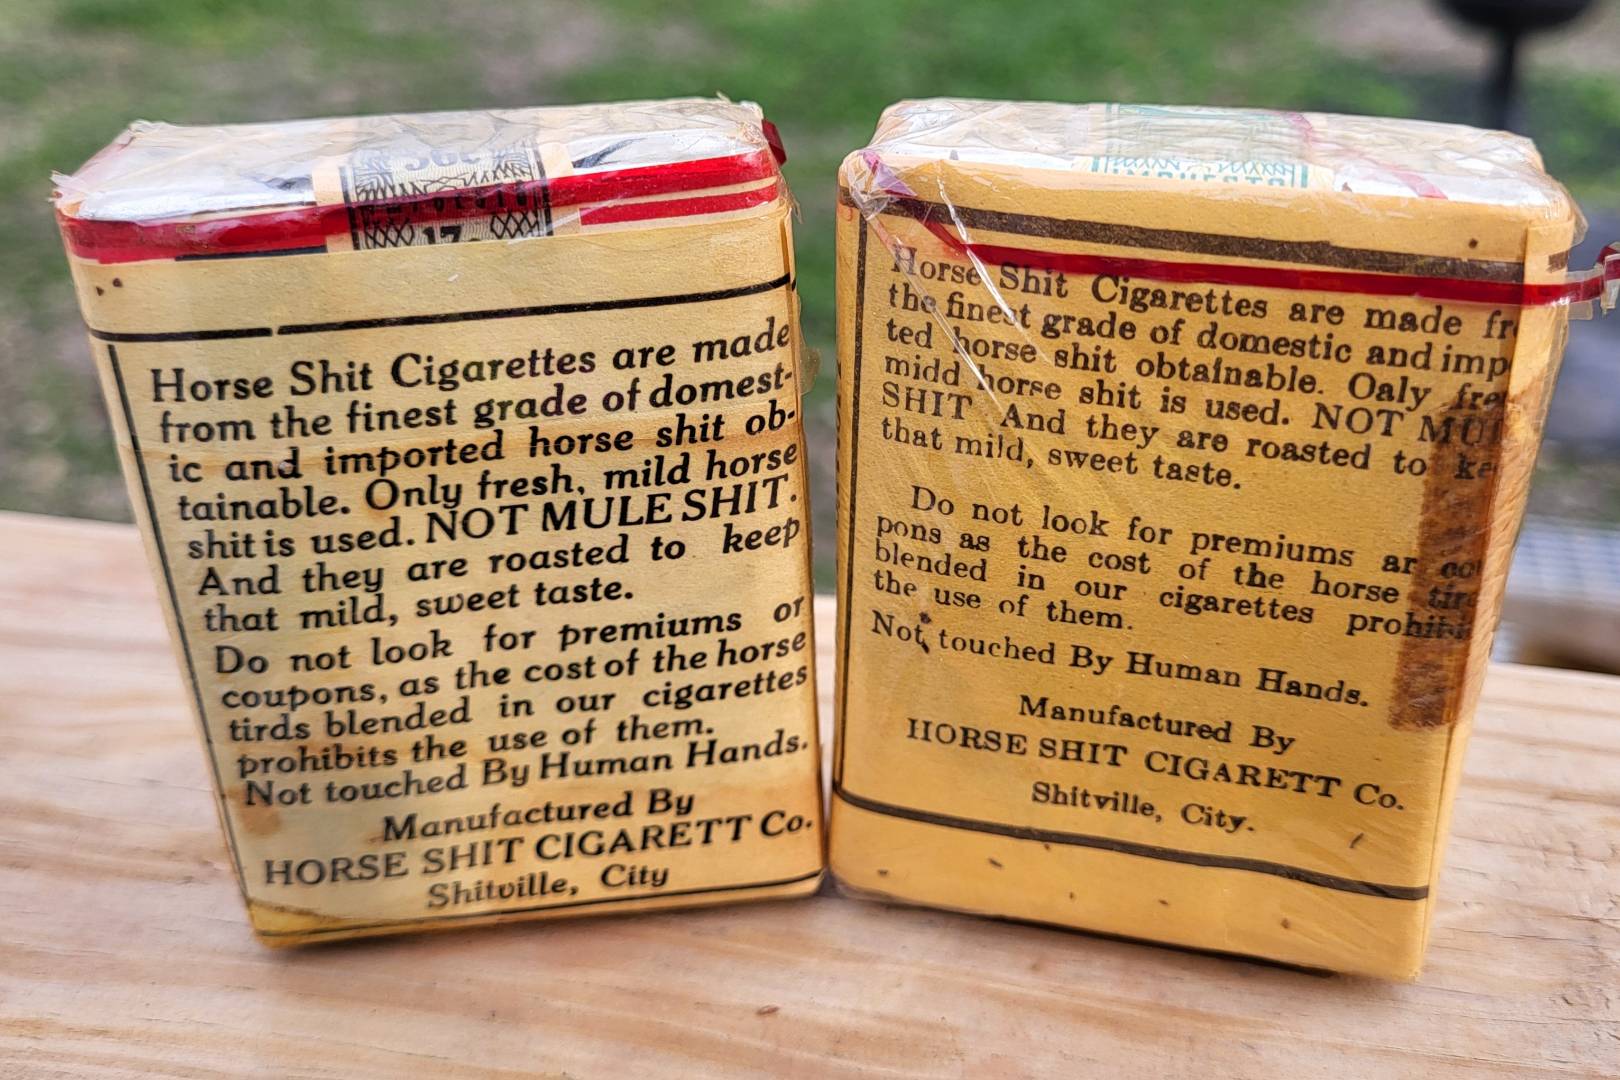 Horse Shit Cigarettes are made
from the finest grade of domest-
ic and imported horse shit ob-
tainable. Only fresh, mild horse
shit is used. NOT MULE SHIT.
And they are roasted to keep
that mild, sweet taste.
Do not look for premiums or
coupons, as the cost of the horse
tirds blended in our cigarettes
prohibits the use of them.
Not touched By Human Hands.
Manufactured By
HORSE SHIT CIGARETT Co.
Shitville, City
IMPUESTO
Horse Shit Cigarettes are made fr
the finest grade of domestic and imp
ted horse shit obtainable. Oaly fre
midd horse shit is used. NOT MUL
SHIT And they are roasted to ke
that mild, sweet taste.
Do not look for premiums ar cou
pons as the cost of the horse tird
blended in our cigarettes prohibit
the use of them.
Not touched By Human Hands.
Manufactured By
HORSE SHIT CIGARETT Co.
Shitville, City.